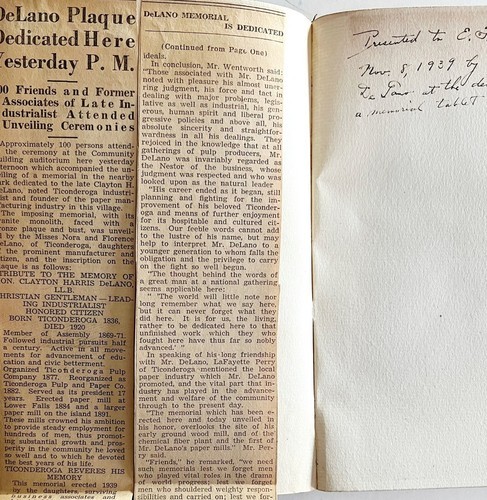 DeLano Plaque
Dedicated Here
Yesterday P. M.
00 Friends and Former
Associates of Late In-
dustrialist Attended
Unveiling Ceremonies
Approximately 100 persons attend-
the ceremony at the Community
uilding auditorium here yesterday
ternoon which accompanied the un-
iling of a memorial in the nearby
rk dedicated to the late Clayton H.
eLano, noted Ticonderoga industri-
ist and founder of the paper man-
acturing industry in this village.
The imposing memorial, with its
anite monolith, faced with a
onze plaque and bust, was unveil-
by the Misses Nora and Florence
eLano, of Ticonderoga, daughters
the prominent manufacturer and
tizen, and the inscription on the
aque is as follows:
TRIBUTE TO THE MEMORY OF
ON. CLAYTON HARRIS DeLANO,
LL.B.
HRISTIAN GENTLEMAN — LEAD-
ING INDUSTRIALIST
HONORED CITIZEN
BORN TICONDEROGA 1836,
DIED 1920
Member of Assembly 1869-71.
Followed industrial pursuits half
a century. Active in all move-
ments for advancement of edu-
cation and civic betterment.
Organized Ticonderoga Pulp
Company 1877. Reorganized as
Ticonderoga Pulp and Paper Co.
1882. Served as its president 37
years. Erected paper mill at
Lower Falls 1884 and a larger
paper mill on the island 1891.
These mills crowned his ambition
to provide steady employment for
hundreds of men, thus promot-
ing substantial growth and pros-
perity in the community he loved
so well and to which he devoted
the best years of his life.
TICONDEROGA REVERES HIS
MEMORY
This memorial erected 1939
by the daughters, surviving
business associates and
DeLANO MEMORIAL
IS DEDICATED
(Continued from Page One)
ideals.
In conclusion, Mr. Wentworth said:
"Those associated with Mr. DeLano
need not to measure his almost uner-
ring judgment, his force and tact in
dealing with major problems, legis-
lative as well as industrial, his gen-
erous, human spirit and liberal pro-
gressive policies and above all, his
absolute sincerity and straightfor-
wardness in all his dealings. They
rejoiced in the knowledge that at all
gatherings of pulp producers, Mr.
DeLano was invariably regarded as
the Nestor of the business, whose
judgment was respected and who was
looked upon as the natural leader
"His career ended as it began, still
planning and fighting for the im-
provement of his beloved Ticonder-
oga and means of further enjoyment
for its hospitable and cultured citi-
zens. Our feeble words cannot add
to the lustre of his name, but may
help to interpret Mr. DeLano to a
younger generation to whom falls the
obligation and the privilege to carry
on the fight so well begun.
"The thought behind the words of
a great man at a national gathering
seems applicable here:
" 'The world will little note nor
long remember what we say here,
but it can never forget what they
did here. It is for us, the living,
rather to be dedicated here to that
unfinished work which they who
fought here have thus far so nobly
advanced.' "
In speaking of his long friendship
with Mr. DeLano, LaFayette Perry
of Ticonderoga mentioned the local
paper industry which Mr. DeLano
promoted, and the vital part that in-
dustry has played in the advance-
ment and welfare of the community
through to the present day.
"The memorial which has been e-
rected here and today unveiled in
his honor, overlooks the site of his
early ground wood mill, and of the
chemical fiber plant and the first of
Mr. DeLano's paper mills." Mr. Per-
ry said.
"Friends," he remarked, "we need
such memorials lest we forget men
who played vital roles in the drama
of world progress; lest we forget
men who shouldered weighty respon-
sibilities and carried on; lest we for-
Presented to E.
Nov. 8, 1939 by
De Lano at the de
a memorial tablet